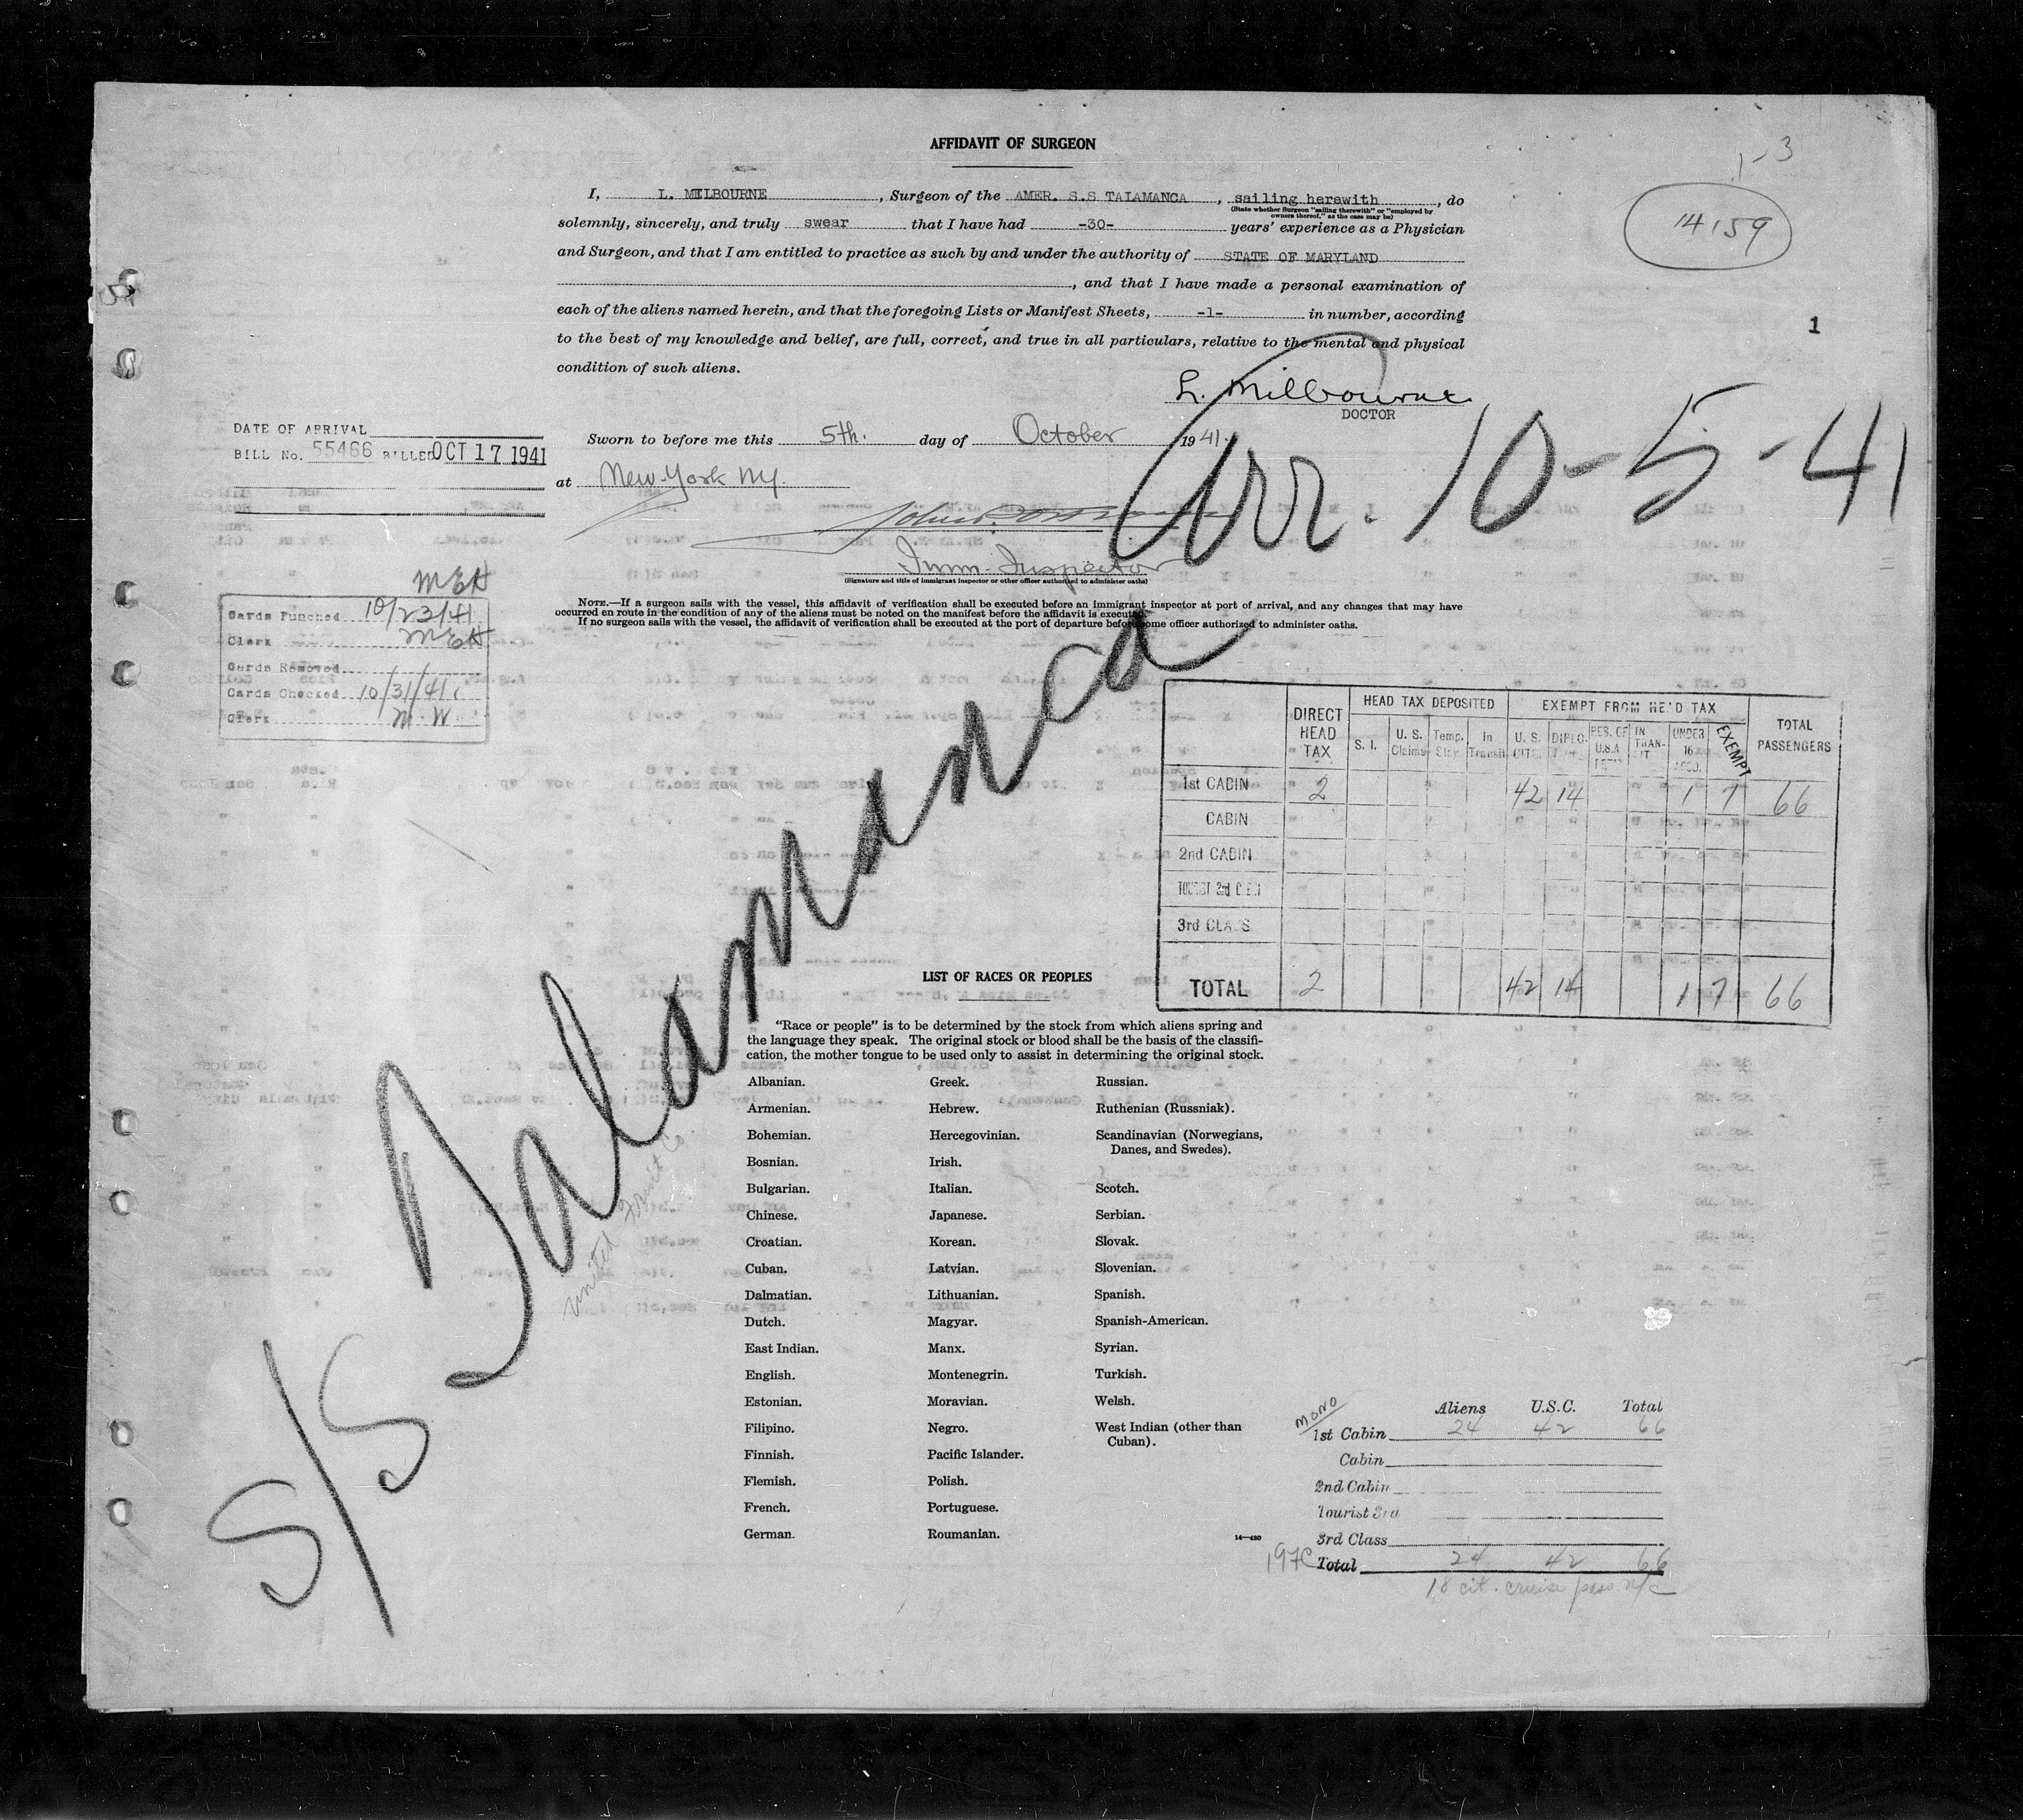 AFFIDAVIT OF SURGEON
1-3
14159
1
I, L. MILBOURNE, Surgeon of the AMER. S.S TALAMANCA, sailing herewith, do
(State whether Surgeon "sailing therewith" or "employed by
owners thereof," as the case may be)
solemnly, sincerely, and truly swear that I have had -30- years' experience as a Physician
and Surgeon, and that I am entitled to practice as such by and under the authority of STATE OF MARYLAND
, and that I have made a personal examination of
each of the aliens named herein, and that the foregoing Lists or Manifest Sheets, -1- in number, according
to the best of my knowledge and belief, are full, correct, and true in all particulars, relative to the mental and physical
condition of such aliens.
L. Milbourne
DOCTOR
DATE OF ARRIVAL
BILL No. 55466 BILLED OCT 17 1941
Sworn to before me this 5th. day of October 1941.
at New York NY.
Arr. 10-5-41
Imm. Inspector
(Signature and title of immigrant inspector or other officer authorized to administer oaths)
NOTE.—If a surgeon sails with the vessel, this affidavit of verification shall be executed before an immigrant inspector at port of arrival, and any changes that may have
occurred en route in the condition of any of the aliens must be noted on the manifest before the affidavit is executed.
If no surgeon sails with the vessel, the affidavit of verification shall be executed at the port of departure before some officer authorized to administer oaths.
MEK
Cards Punched 10/23/41
Clerk MEK
Cards Removed
Cards Checked 10/31/41
Clerk M.W.
S/S Talamanca
United Fruit Co
DIRECT HEAD TAX HEAD TAX DEPOSITED EXEMPT FROM HEAD TAX TOTAL PASSENGERS
S. I. U. S. Claims Temp. Stay In Transit U. S. CITS. DIPLO. RES. OF U.S.A IN TRAN-SIT UNDER 16 ACCO. EXEMPT
1st CABIN 2 42 14 1 7 66
CABIN
2nd CABIN
TOURIST 3rd
3rd CLASS
TOTAL 2 42 14 1 7 66
LIST OF RACES OR PEOPLES
"Race or people" is to be determined by the stock from which aliens spring and
the language they speak. The original stock or blood shall be the basis of the classifi-
cation, the mother tongue to be used only to assist in determining the original stock.
Albanian.
Armenian.
Bohemian.
Bosnian.
Bulgarian.
Chinese.
Croatian.
Cuban.
Dalmatian.
Dutch.
East Indian.
English.
Estonian.
Filipino.
Finnish.
Flemish.
French.
German.
Greek.
Hebrew.
Hercegovinian.
Irish.
Italian.
Japanese.
Korean.
Latvian.
Lithuanian.
Magyar.
Manx.
Montenegrin.
Moravian.
Negro.
Pacific Islander.
Polish.
Portuguese.
Roumanian.
Russian.
Ruthenian (Russniak).
Scandinavian (Norwegians,
Danes, and Swedes).
Scotch.
Serbian.
Slovak.
Slovenian.
Spanish.
Spanish-American.
Syrian.
Turkish.
Welsh.
West Indian (other than
Cuban).
14—480
MONO
Aliens U.S.C. Total
1st Cabin 24 42 66
Cabin
2nd Cabin
Tourist 3rd
3rd Class
197C Total 24 42 66
18 cit. cruise pass. n/c